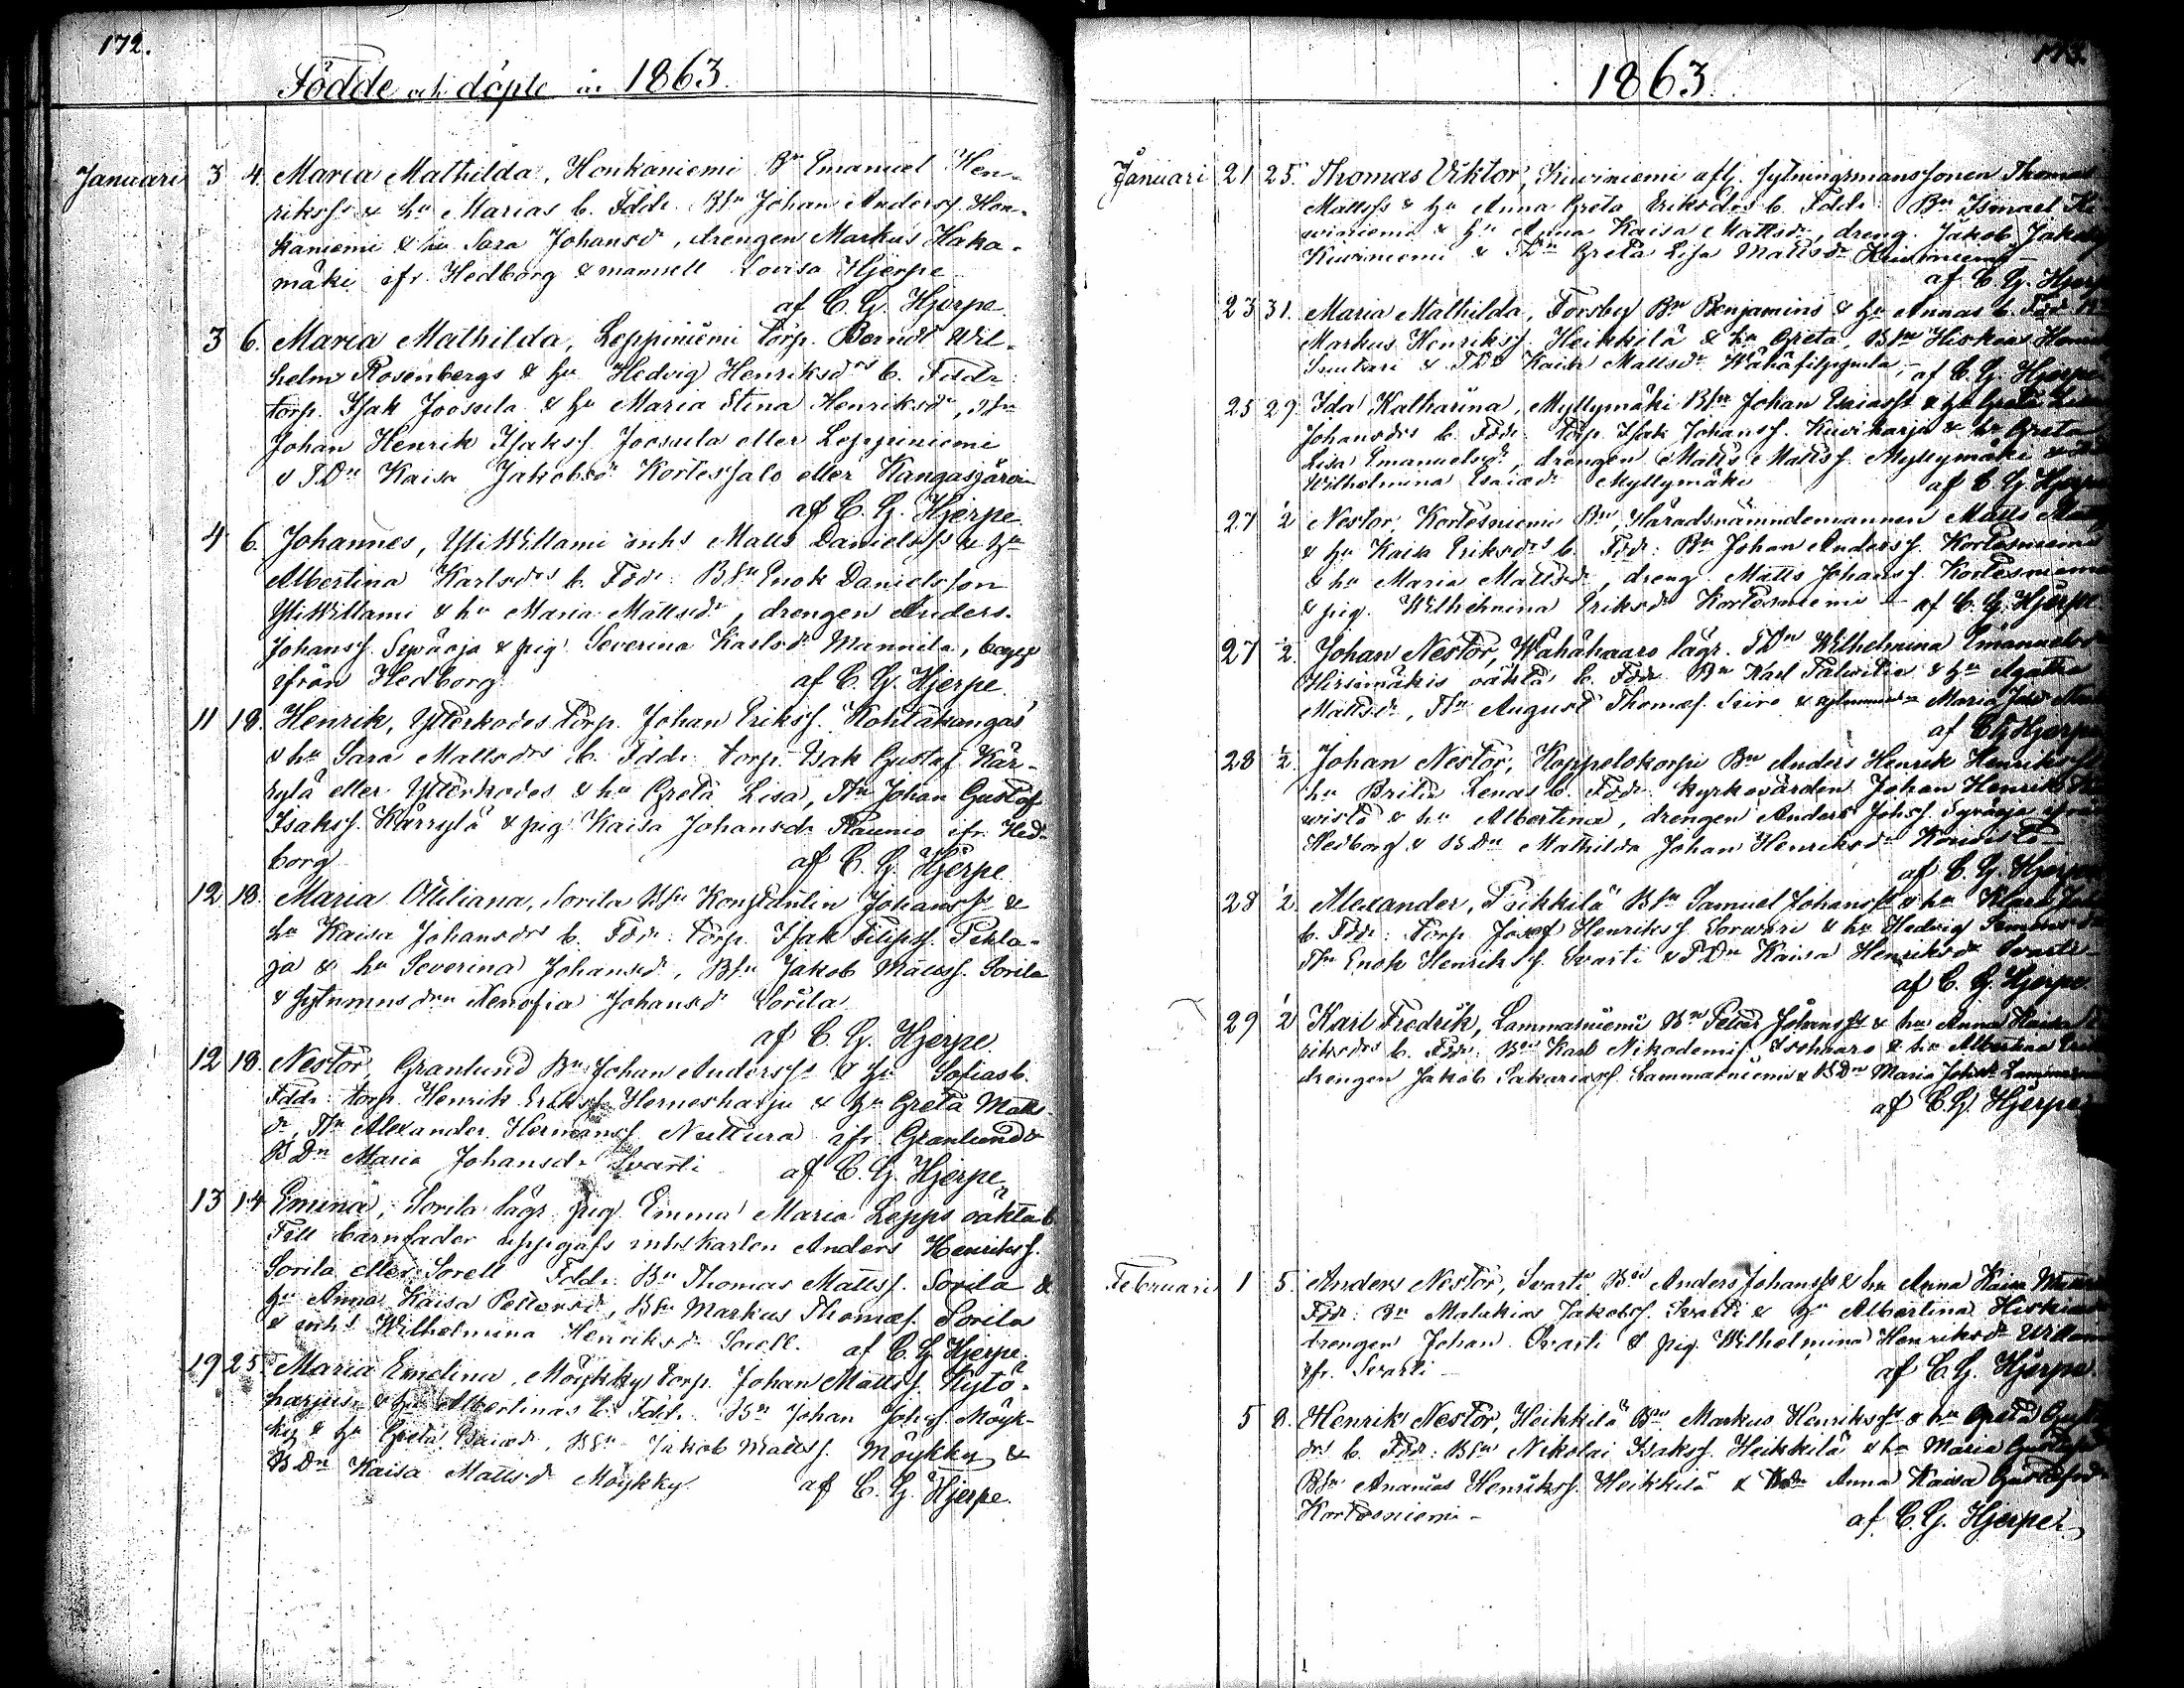 172.
Födde och döpte år 1863.
Januari 3 4. Maria Mathilda, Honkaniemi Bn Emanuel Hen-
rikss & hu Marias b. Fddr. BSn Johan Anderss. Hon-
kaniemi & hu Sara Johansdr, drengen Markus Haka-
mäki ifr. Hedborg & mamsell Lovisa Hjerpe
af C. G. Hjerpe.
3 6. Maria Mathilda, Leppiniemi torp. Berndt Wil-
helm Rosenbergs & hu Hedvig Henriksdrs b. Fddr:
torp. Isak Joosuela & hu Maria Stina Henriksdr, TSn
Johan Henrik Isakss. Joosuela eller Leppiniemi
& TDn Kaisa Jakobsdr Kortessalo eller Kangasjärvi
af C. G. Hjerpe.
4 6. Johannes, YliWillami inhs Matts Danielss & hu
Albertina Karlsdrs b. Fddr: BSn Enok Danielsson
YliWillami & hu Maria Mattsdr, drengen Anders
Johanss. Sepäoja & pig. Severina Karlsdr Mannila, begge
ifrån Hedborg af C. G. Hjerpe.
11 18. Henrik, Ytterkodes torp. Johan Erikss. Kohtakangas
& hu Sara Mattsdrs b. Fddr: torp. Isak Gustaf Kär-
rylä eller Ytterkodes & hu Greta Lisa, TSn Johan Gustaf
Isakss. Kärrylä & pig. Kaisa Johansdr Raunio ifr. Hed-
borg af C. G. Hjerpe.
12 18. Maria Otiliana, Sorila BSn Konstantin Johanss &
hu Kaisa Johansdrs b. Fddr: torp. Isak Filipss. Pekla-
ja & hu Severina Johansdr, BSn Jakob Mattss. Sorila
& sytnmns drn Xenofia Johansdr Sorila
af C. G. Hjerpe.
12 18. Nestor, Granlund Bn Johan Anderss & hu Sofias b.
Fddr: torp. Henrik Erikss. Hernesharju & hu Greta Matts-
dr, TSn Alexander Hermanss. Nuttura ifr. Granlund &
BDn Maria Johansdr Svarti af C. G. Hjerpe
13 14 Emina, Sorila lägr. pig. Emma Maria Lepps oäkta b.
Till barnfader uppgafs inhs karlen Anders Henrikss.
Sorila eller Sorell Fddr: Bn Thomas Mattss. Sorila &
hu Anna Kaisa Pettersdr, BSn Markus Thomas. Sorila
& inhs Wilhelmina Henriksdr Sorell. af C. G. Hjerpe.
19 25. Maria Emelina, Möykky torp. Johan Mattss. Kytö-
harjus & hu Albertinas b. Fddr. Bn Johan Johss. Möyk-
ky & hu Greta Esaiedr, BSn Jakob Mattss. Möykky &
BDn Kaisa Mattsdr Möykky. af C. G. Hjerpe.
173.
1863.
Januari 21 25. Thomas Viktor, Kiwiniemi aflj. sytningsmanssonen Thomas
Mattss & hu Anna Greta Eriksdrs b. Fddr: Bn Ismael Ki
winiemi & hu Anna Kaisa Mattsdr, dreng. Jakob Jakobs
Kiwiniemi & TDn Greta Lisa Mattsdr Kiwiniemi
af C. G. Hjerpe
23 31. Maria Mathilda, Forsby Bn Benjamins & hu Annas b. Fddr
Markus Henrikss. Heikkilä & hu Greta, BSn Hiskias
Suutari & TDn Kaisa Mattsdr Wähäfilppula, af C. G. Hjerpe
25 29. Ida Katharina, Myllymäki BSn Johan Esaiass & hu Greta
Johansdrs b. Fddr: torp. Isak Johanss. Kiwiharju & hu Greta
Lisa Emanuelsdr, drengen Matts Mattss. Myllymäki
Wilhelmina Esaiedr Myllymäki af C. G. Hjerpe
27 1/2 Nestor, Kortesniemi Bn, Häradsnämndemannen Matts
& hu Kaisa Eriksdrs b. Fddr: Bn Johan Anderss. Kortesniemi
& hu Maria Mattsdr, dreng. Matts Johanss. Kortesniemi
& pig. Wilhelmina Eriksdr Kortesniemi af C. G. Hjerpe
27 1/2. Johan Nestor, Wähähaaro lägr. TDn Wilhelmina Emanuels
Hirsimäkis oäkta b. Fddr. Bn Karl Talwitie & hu Agatha
Mattsdr, TSn August Thomas. Seiro & Maria
af C. G. Hjerpe
28 1/2. Johan Nestor, Koppelokorpi Bn Anders Henrik Henrikss
hu Brita Lenas b. Fddr: kyrkovärden Johan Henrik
wisto & hu Albertina, drengen Anders Johss. Sepäoja ifrån
Hedborg & BDn Mathilda Johan Henriksdr
af C. G. Hjerpe
28 1/2. Alexander, Pikkilä BSn Samuel Johanss & hu Klara
b. Fddr: torp. Josef Henrikss. Sorwari & hu Hedvig
TSn Enok Henrikss. Svarti & TDn Kaisa Henriksdr Svarti
af C. G. Hjerpe
29 1/2 Karl Fredrik, Lammasniemi Bn Petter Johanss & hu Anna Kaisa
riksdrs b. Fddr: Bn Karl Nikodemis. Isohaaro & hu Albertina
drengen Jakob Sakariass. Lammasniemi & BDn Maria Lammasniemi
af C. G. Hjerpe
Februari 1 5. Anders Nestor, Svarti Bn Anders Johanss & hu Anna Kaisa
Fddr: Bn Malakias Jakobss. Svarti & hu Albertina Hiskias
drengen Johan Svarti & pig. Wilhelmina Henriksdr
ifr. Svarti af C. G. Hjerpe.
5 8. Henrik Nestor, Heikkilä Bn Markus Henrikss & hu Greta
drs b. Fddr: BSn Nikolai Isakss. Heikkilä & hu Maria
BSn Ananias Henrikss. Heikkilä & Anna Kaisa Gustafsdr
Kortesniemi
af C. G. Hjerpe